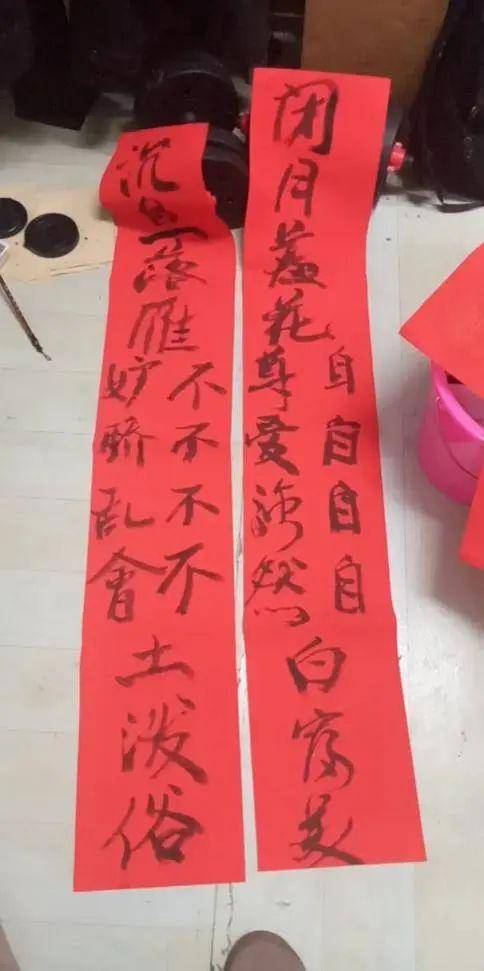 闭月羞花自尊自爱自强自然白富美
沉鱼落雁不妒不骄不乱不會土泼俗